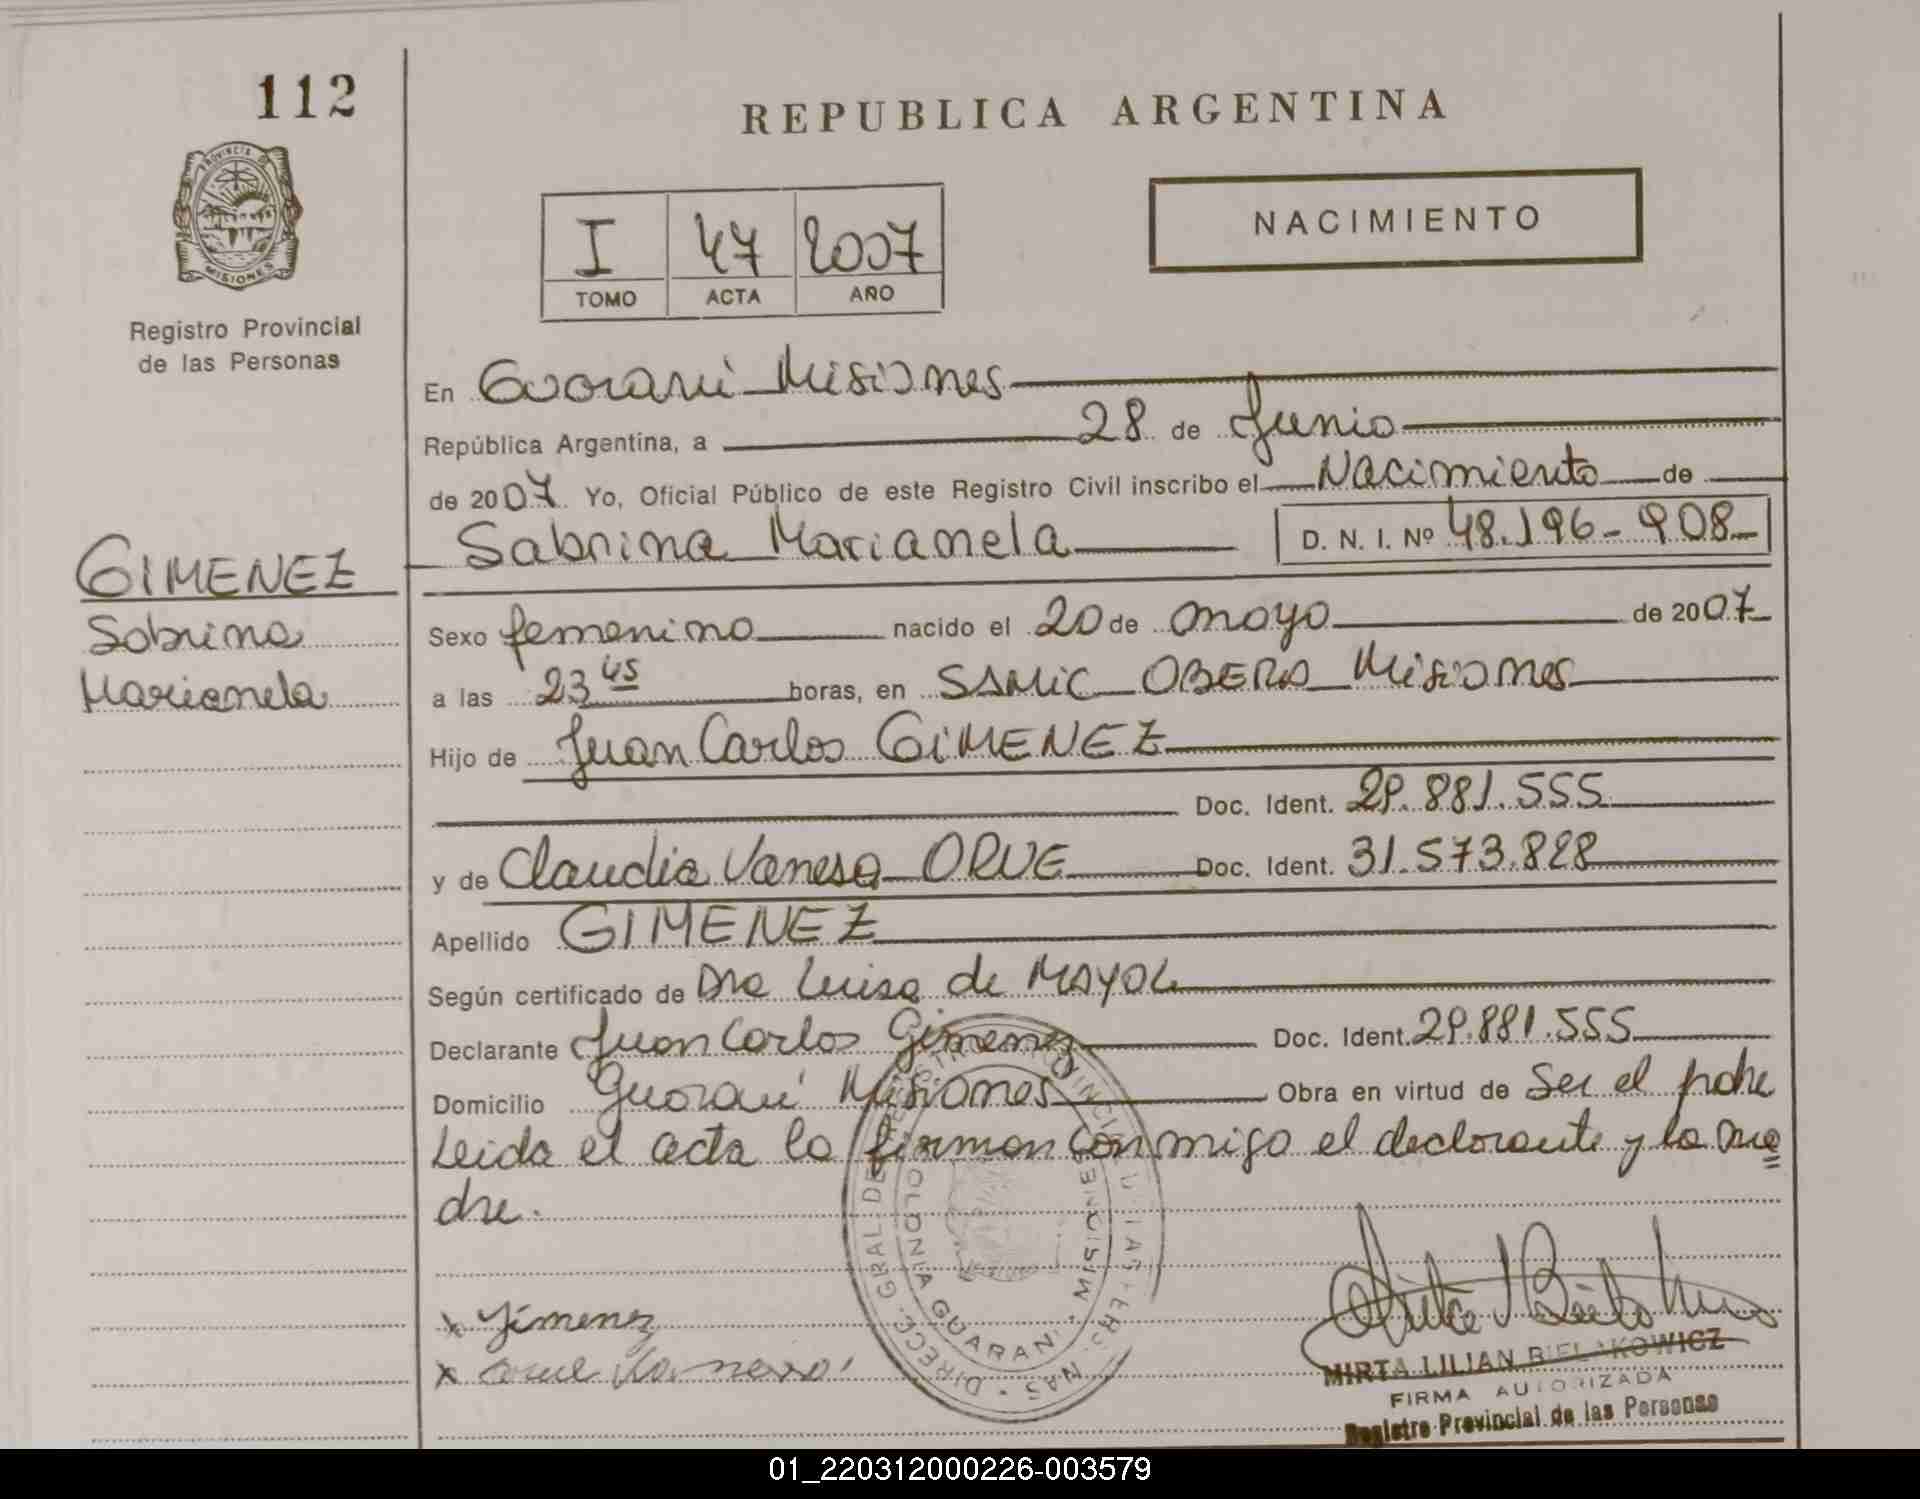 112
REPUBLICA ARGENTINA
PROVINCIA DE MISIONES
Registro Provincial
de las Personas
NACIMIENTO
I 47 2007
TOMO ACTA AÑO
En Guarani Misiones
República Argentina, a 28 de Junio
de 2007 Yo, Oficial Público de este Registro Civil inscribo el Nacimiento de
Sabrina Marianela D. N. I. Nº 48.196-908-
GIMENEZ
Sabrina
Marianela
Sexo femenino nacido el 20 de mayo de 2007
a las 23 45 horas, en SAMIC OBERA Misiones
Hijo de Juan Carlos GIMENEZ
Doc. Ident. 29.881.555
y de Claudia Vanesa ORUE Doc. Ident. 31.573.828
Apellido GIMENEZ
Según certificado de Dra Luisa de MAYOL
Declarante Juan Carlos Gimenez Doc. Ident. 29.881.555
Domicilio Guarani Misiones Obra en virtud de Ser el padre
Leida el acta la firman conmigo el declarante y la ma
dre.
x Jimenez
x orue Vanesa
DIRECC. GRAL DEL REGISTRO PROVINCIAL DE LAS PERSONAS
COLONIA GUARANI MISIONES
MIRTA LILIAN BIELAKOWICZ
FIRMA AUTORIZADA
Registro Provincial de las Personas
01_220312000226-003579